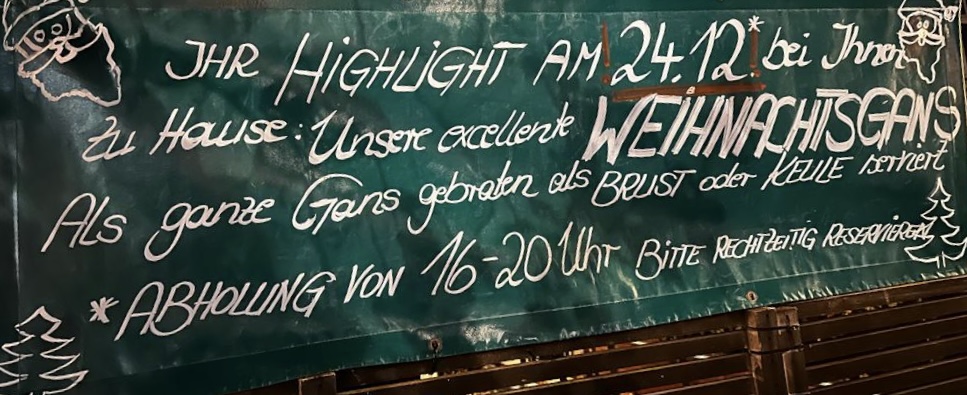 JHR HIGHLIGHT AM !24.12!* bei Jhnen
zu Hause: Unsere excellente WEIHNACHTSGANS
Als ganze Gans gebraten als BRUST oder KEULE serviert
*ABHOLUNG VON 16-20 Uhr BITTE RECHTZEITIG RESERVIEREN